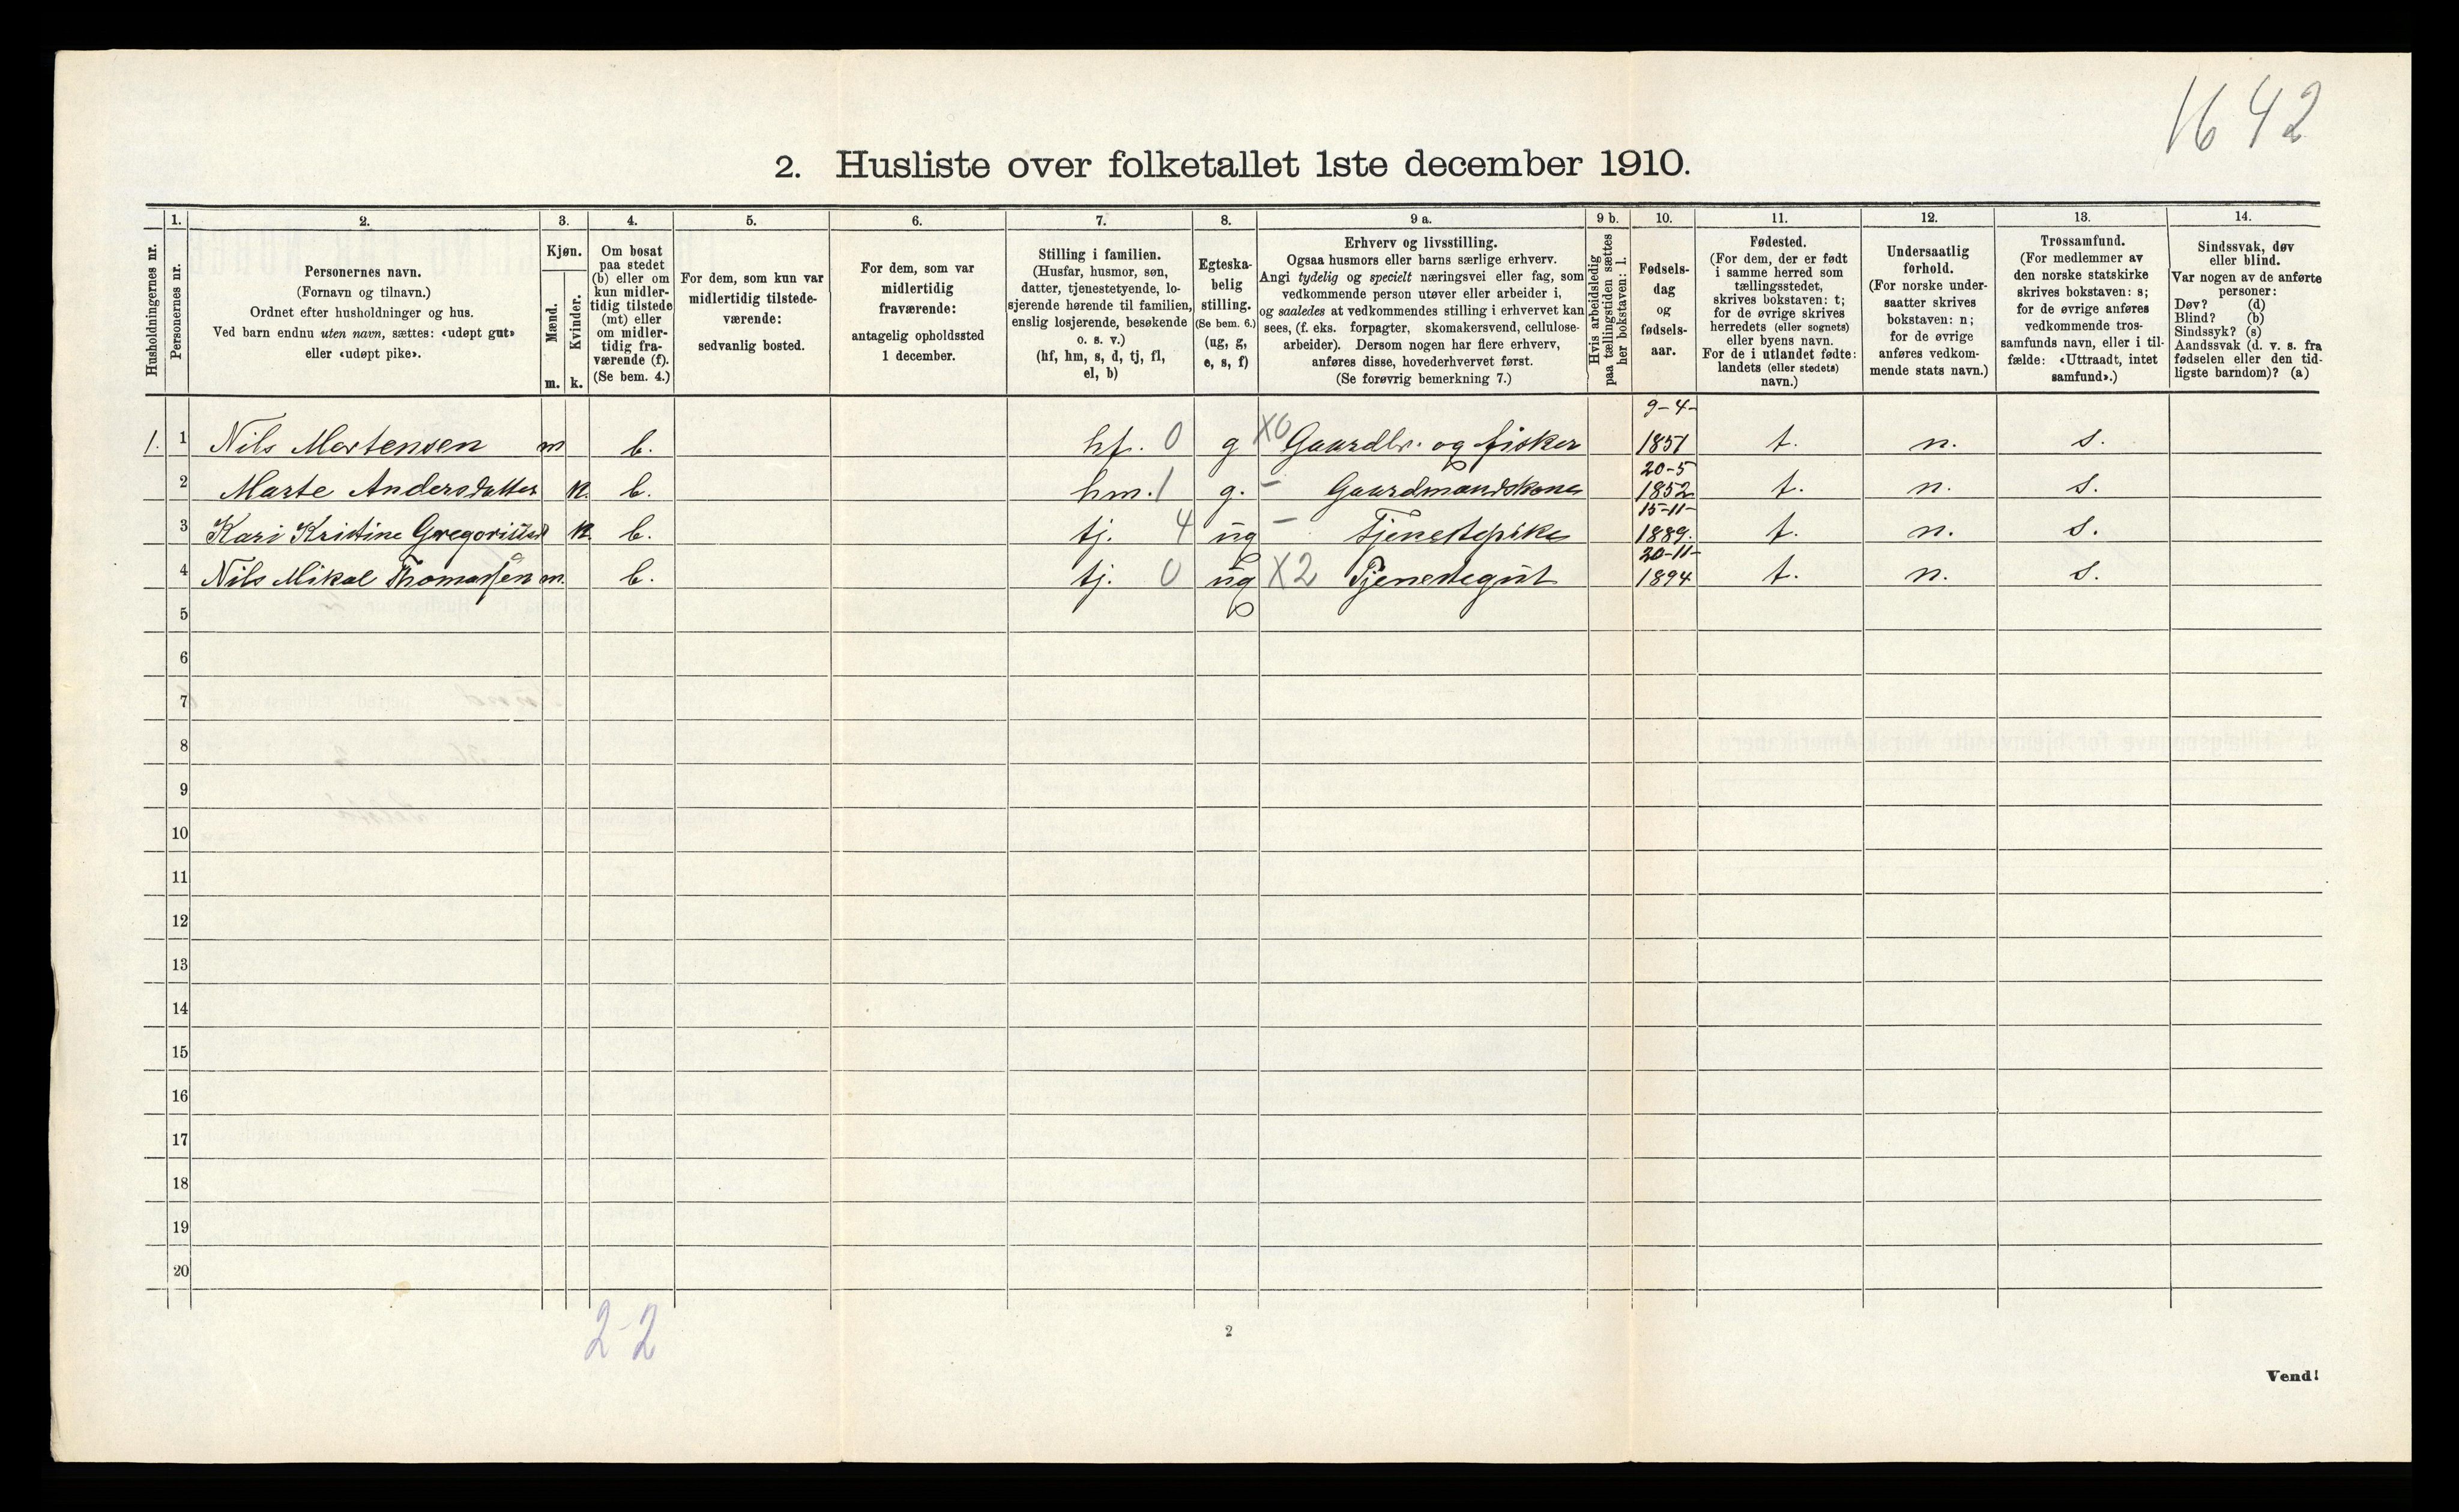 1642
2. Husliste over folketallet 1ste december 1910.
Husholdningernes nr.
1.
Personernes nr.
2.
Personernes navn.
(Fornavn og tilnavn.)
Ordnet efter husholdninger og hus.
Ved barn endnu uten navn, sættes: «udøpt gut»
eller «udøpt pike».
3.
Kjøn.
Mænd.
m.
Kvinder.
k.
4.
Om bosat
paa stedet
(b) eller om
kun midler-
tidig tilstede
(mt) eller
om midler-
tidig fra-
værende (f).
(Se bem. 4.)
5.
For dem, som kun var
midlertidig tilstede-
værende:
sedvanlig bosted.
6.
For dem, som var
midlertidig
fraværende:
antagelig opholdssted
1 december.
7.
Stilling i familien.
(Husfar, husmor, søn,
datter, tjenestetyende, lo-
sjerende hørende til familien,
enslig losjerende, besøkende
o. s. v.)
(hf, hm, s, d, tj, fl,
el, b)
8.
Egteska-
belig
stilling.
(Se bem. 6.)
(ug, g,
e, s, f)
9 a.
Erhverv og livsstilling.
Ogsaa husmors eller barns særlige erhverv.
Angi tydelig og specielt næringsvei eller fag, som
vedkommende person utøver eller arbeider i,
og saaledes at vedkommendes stilling i erhvervet kan
sees, (f. eks. forpagter, skomakersvend, cellulose-
arbeider). Dersom nogen har flere erhverv,
anføres disse, hovederhvervet først.
(Se forøvrig bemerkning 7.)
9 b.
Hvis arbeidsledig
paa tællingstiden sættes
her bokstaven: l.
10.
Fødsels-
dag
og
fødsels-
aar.
11.
Fødested.
(For dem, der er født
i samme herred som
tællingsstedet,
skrives bokstaven: t;
for de øvrige skrives
herredets (eller sognets)
eller byens navn.
For de i utlandet fødte:
landets (eller stedets)
navn.)
12.
Undersaatlig
forhold.
(For norske under-
saatter skrives
bokstaven: n;
for de øvrige
anføres vedkom-
mende stats navn.)
13.
Trossamfund.
(For medlemmer av
den norske statskirke
skrives bokstaven: s;
for de øvrige anføres
vedkommende tros-
samfunds navn, eller i til-
fælde: «Uttraadt, intet
samfund».)
14.
Sindssvak, døv
eller blind.
Var nogen av de anførte
personer:
Døv? (d)
Blind? (b)
Sindssyk? (s)
Aandssvak (d. v. s. fra
fødselen eller den tid-
ligste barndom)? (a)
1. 1 Nils Mortensen m b. hf. 0 g X0 Gaardbr. og fisker 9-4- 1851 t. n. s.
2 Marte Andersdatter k. b. hm. 1 g. - Gaardmandskone 20-5 1852 t. n. s.
3 Kari Kristine k. b. tj. 4 ug - Tjenestepike 15-11- 1889. t. n. s.
4 Nils Mikal Thomassen m. b. tj. 0 ug X2 Tjenestegut 20-11- 1894 t. n. s.
5
6
7
8
9
10
11
12
13
14
15
16
17
18
19
20
2-2
2
Vend!